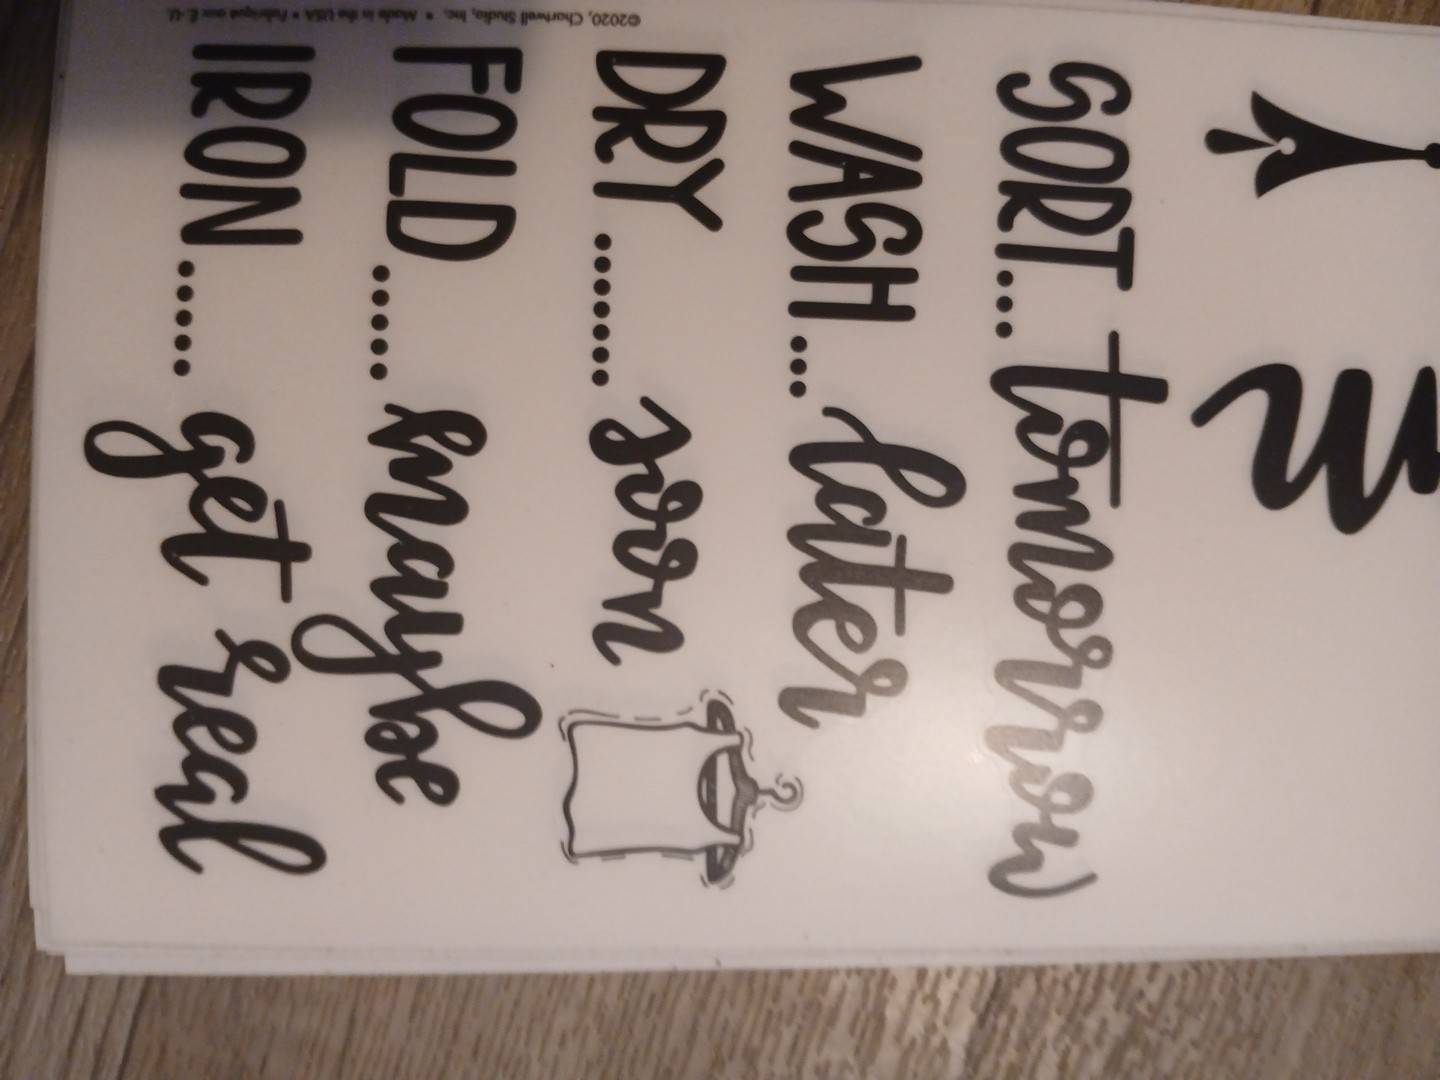 SORT... tomorrow
WASH... later
DRY........ soon
FOLD...... maybe
IRON...... get real
©2020, Chartwell Studio, Inc. • Made in the USA • Fabriqué aux É.-U.